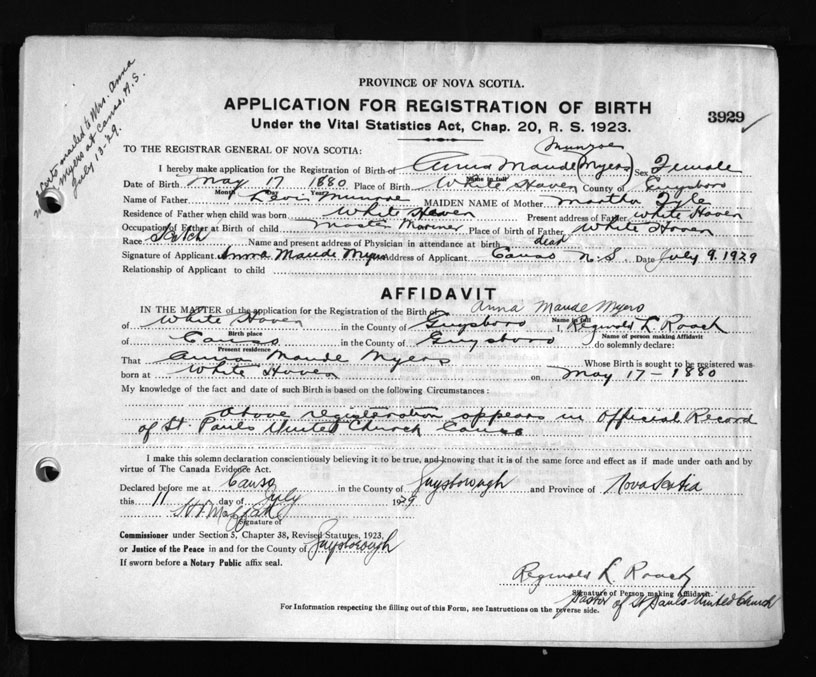 Certs mailed to Mrs. Anna
Myers at Canso, N.S.
July 13-29.
PROVINCE OF NOVA SCOTIA.
APPLICATION FOR REGISTRATION OF BIRTH
3929
Under the Vital Statistics Act, Chap. 20, R. S. 1923.
TO THE REGISTRAR GENERAL OF NOVA SCOTIA:
Munroe
I hereby make application for the Registration of Birth of Anna Maude (Myers) Sex Female
Name in full
Date of Birth May 17 1880 Place of Birth White Haven County of Guysboro
Month Day Year
Name of Father Levin Munroe MAIDEN NAME of Mother Martha Fyle
Residence of Father when child was born White Haven Present address of Father White Haven
Occupation of Father at Birth of child Master Mariner Place of birth of Father White Haven
Race Scotch Name and present address of Physician in attendance at birth dead
Signature of Applicant Anna Maude Myers Address of Applicant Canso N.S. Date July 9. 1929
Relationship of Applicant to child
AFFIDAVIT
IN THE MATTER of the application for the Registration of the Birth of Anna Maude Myers
Name in full
of White Haven in the County of Guysboro I, Reginald L Roach
Birth place Name of person making Affidavit
of Canso in the County of Guysboro do solemnly declare:
Present residence
That Anna Maude Myers Whose Birth is sought to be registered was
born at White Haven on May 17 - 1880
My knowledge of the fact and date of such Birth is based on the following Circumstances:
Above registration appears in Official Record
of St. Pauls United Church Canso
I make this solemn declaration conscientiously believing it to be true, and knowing that it is of the same force and effect as if made under oath and by
virtue of The Canada Evidence Act.
Declared before me at Canso in the County of Guysborough and Province of Nova Scotia
this 11 day of July 1929
Signature of
Commissioner under Section 5, Chapter 38, Revised Statutes, 1923,
or Justice of the Peace in and for the County of Guysborough
If sworn before a Notary Public affix seal.
Reginald L. Roach
Signature of Person making Affidavit.
Pastor of St Pauls United Church
For Information respecting the filling out of this Form, see Instructions on the reverse side.